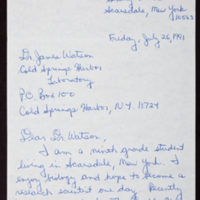 Scarsdale, New York
10583
Friday, July 26, 1991
Dr. James Watson
Cold Springs Harbor
Laboratory
P.O. Box 100
Cold Springs Harbor, N.Y. 11724
Dear Dr. Watson,
I am a ninth grade student
living in Scarsdale, New York. I
enjoy biology and hope to become a
research scientist one day. Recently